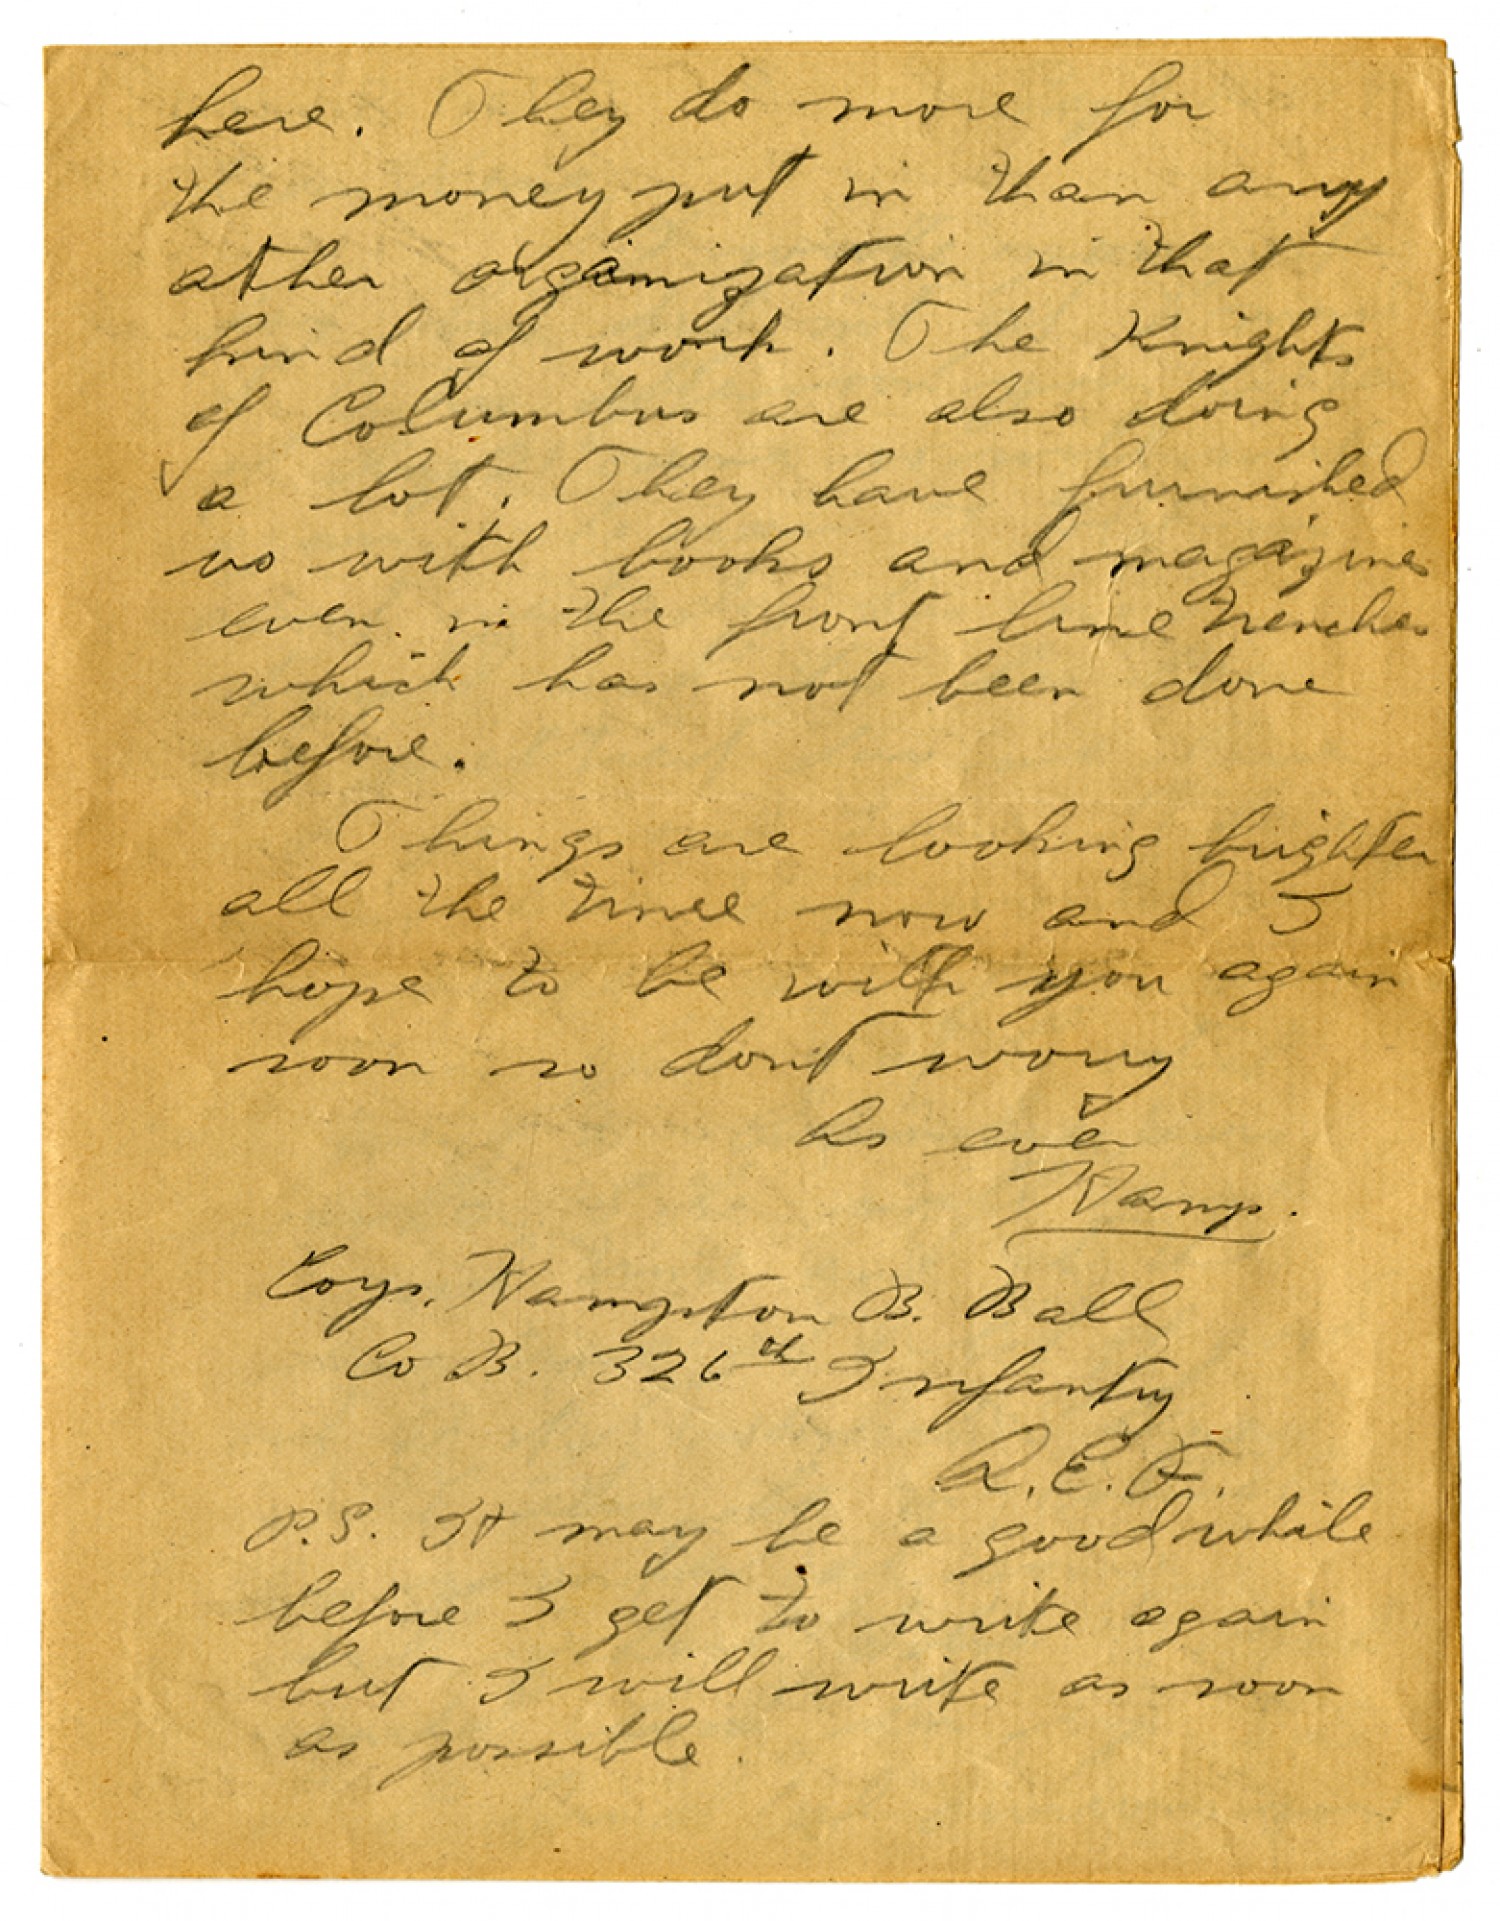 here. They do more for
the money put in than any
other organization in that
kind of work. The Knights
of Columbus are also doing
a lot. They have furnished
us with books and magazines
even in the front line trenches
which has not been done
before.
Things are looking brighter
all the time now and I
hope to be with you again
soon so dont worry
As ever
Hamp.
Corp. Hampton B. Ball
Co B. 326th Infantry
A.E.F.
P.S. It may be a good while
before I get to write again
but I will write as soon
as possible.